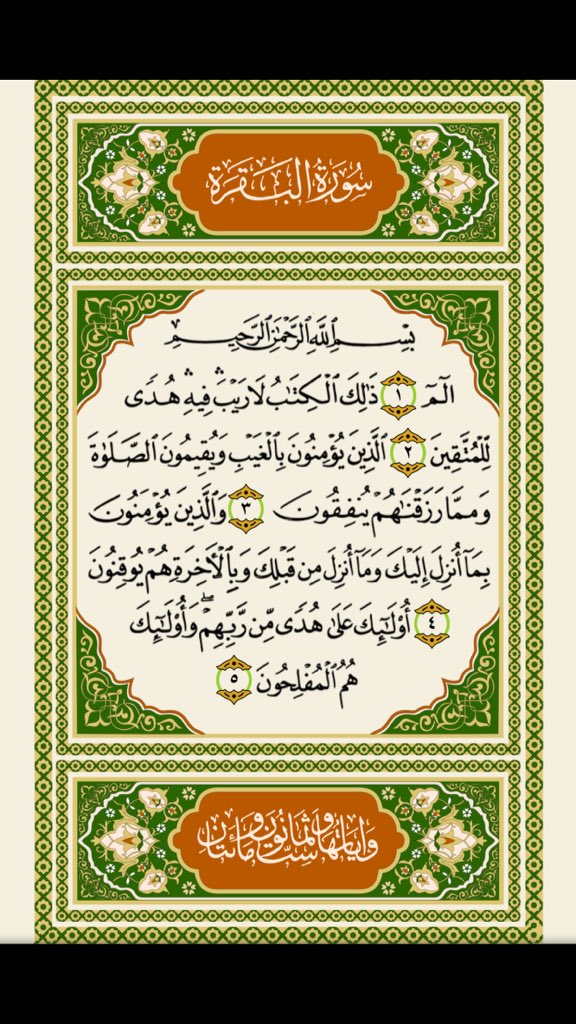 سُورَةُ الْبَقَرَةِ
بِسْمِ ٱللَّهِ ٱلرَّحْمَٰنِ ٱلرَّحِيمِ
الٓمٓ ١ ذَٰلِكَ ٱلْكِتَٰبُ لَا رَيْبَ ۛ فِيهِ ۛ هُدًى
لِّلْمُتَّقِينَ ٢ ٱلَّذِينَ يُؤْمِنُونَ بِٱلْغَيْبِ وَيُقِيمُونَ ٱلصَّلَوٰةَ
وَمِمَّا رَزَقْنَٰهُمْ يُنفِقُونَ ٣ وَٱلَّذِينَ يُؤْمِنُونَ
بِمَآ أُنزِلَ إِلَيْكَ وَمَآ أُنزِلَ مِن قَبْلِكَ وَبِٱلْأَخِرَةِ هُمْ يُوقِنُونَ
٤ أُو۟لَٰٓئِكَ عَلَىٰ هُدًى مِّن رَّبِّهِمْ ۖ وَأُو۟لَٰٓئِكَ
هُمُ ٱلْمُفْلِحُونَ ٥
وَآيَاتُهَا سِتٌّ وَثَمَانُونَ وَمِائَتَانِ